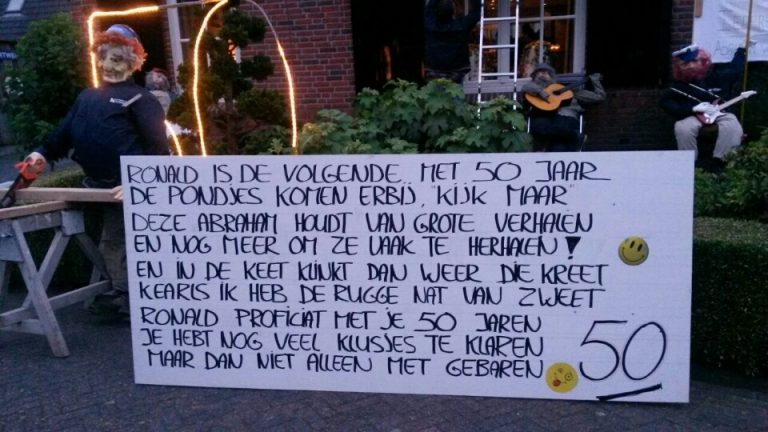 RONALD IS DE VOLGENDE, MET 50 JAAR
DE PONDJES KOMEN ERBIJ, "KIJK MAAR"
DEZE ABRAHAM HOUDT VAN GROTE VERHALEN
EN NOG MEER OM ZE VAAK TE HERHALEN!
EN IN DE KEET KLINKT DAN WEER DIE KREET
KEARLS IK HEB DE RUGGE NAT VAN ZWEET
RONALD PROFICIAT MET JE 50 JAREN
JE HEBT NOG VEEL KLUSJES TE KLAREN
MAAR DAN NIET ALLEEN MET GEBAREN
50